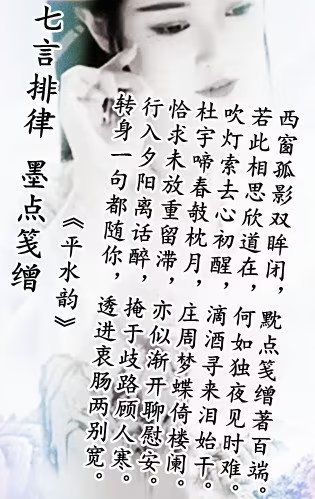 七言排律 墨点笺缯
《平水韵》
西窗孤影双眸闭，
黕点笺缯著百端。
若此相思欣道在，
何如独夜见时难。
吹灯索去心初醒，
滴酒寻来泪始干。
杜宇啼春敧枕月，
庄周梦蝶倚楼阑。
恰求未放重留滞，
亦似渐开聊慰安。
行入夕阳离话醉，
掩于歧路顾人寒。
转身一句都随你，
透进衷肠两别宽。